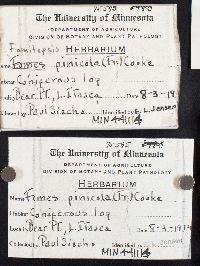 The University of Minnesota
DEPARTMENT OF AGRICULTURE
DIVISION OF BOTANY AND PLANT PATHOLOGY
Fomitopsis HERBARIUM
Name Fomes pinicola (Fr.) Cooke
Habitat Coniferous log
Locality Bear Pt., L. Itasca Date 8-3-19
Collected by Paul Identified by L. Jensen
MIN 44114
The University of Minnesota
DEPARTMENT OF AGRICULTURE
DIVISION OF BOTANY AND PLANT PATHOLOGY
HERBARIUM
Name Fomes pinicola (Fr.) Cooke
Habitat Coniferous log
Locality Bear Pt., L. Itasca Date 8-3-19
Collected by Paul Identified
MIN 44114